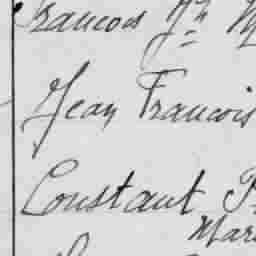 Francois Jh
Jean Francois
Constant
Mar